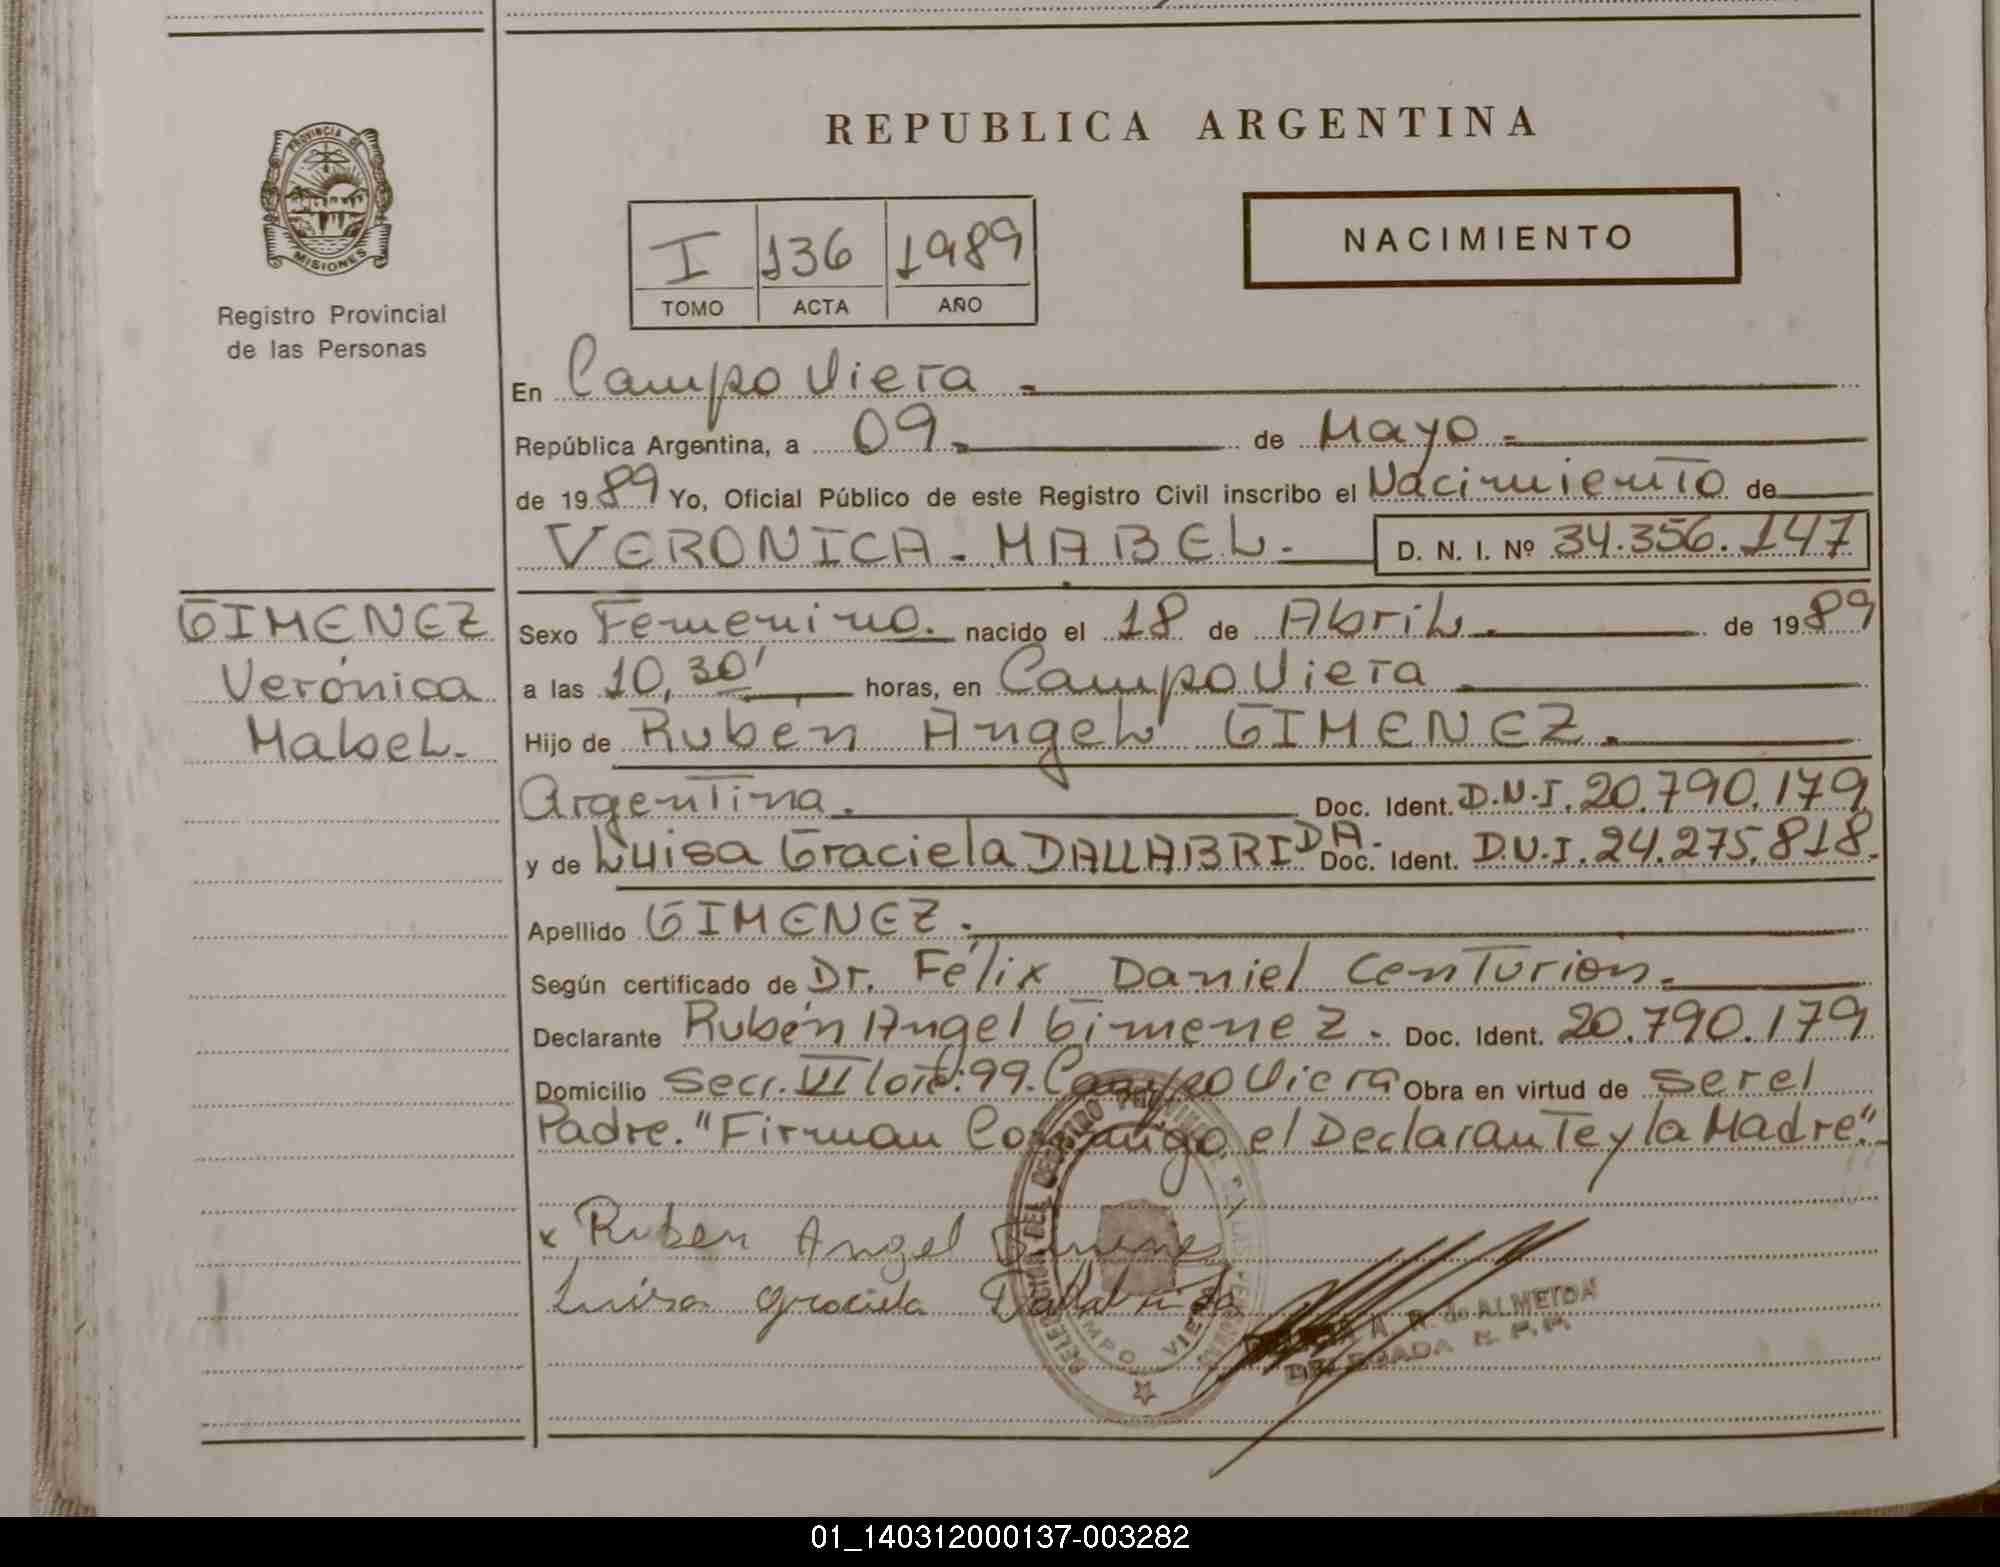 REPUBLICA ARGENTINA
PROVINCIA DE
MISIONES
Registro Provincial
de las Personas
I 136 1989
TOMO ACTA AÑO
NACIMIENTO
En Campo Viera
República Argentina, a 09 de Mayo
de 1989 Yo, Oficial Público de este Registro Civil inscribo el Nacimiento de
VERONICA - MABEL. D. N. I. Nº 34.356.147
GIMENEZ
Verónica
Mabel.
Sexo Femenino. nacido el 18 de Abril. de 1989
a las 10,30' horas, en Campo Viera
Hijo de Ruben Angel GIMENEZ.
Argentina. Doc. Ident. D.N.I. 20.790.179
y de Luisa Graciela DALLABRIDA. Doc. Ident. D.N.I. 24.275.818.
Apellido GIMENEZ.
Según certificado de Dr. Félix Daniel Centurion.
Declarante Rubén Angel Gimenez. Doc. Ident. 20.790.179
Domicilio Secc. VI lote: 99. Campo Viera Obra en virtud de ser el
Padre. "Firman Conmigo el Declarante y la Madre".
x Ruben Angel Gimenes
Luisa Graciela Dallabrida
CAMPO VIERA
A R. de ALMEIDA
DELEGADA R. P. P.
01_140312000137-003282